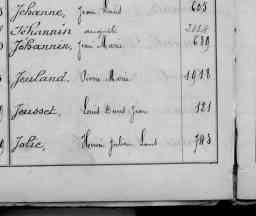 Jéhanne, Jean Louis 605
Jéhannin auguste
Jéhannin, Jean Marie 689
Jeuland, Pierre Marie 1918
Jeusset, Louis Jean 121
Jolic, Henri Julien Louis